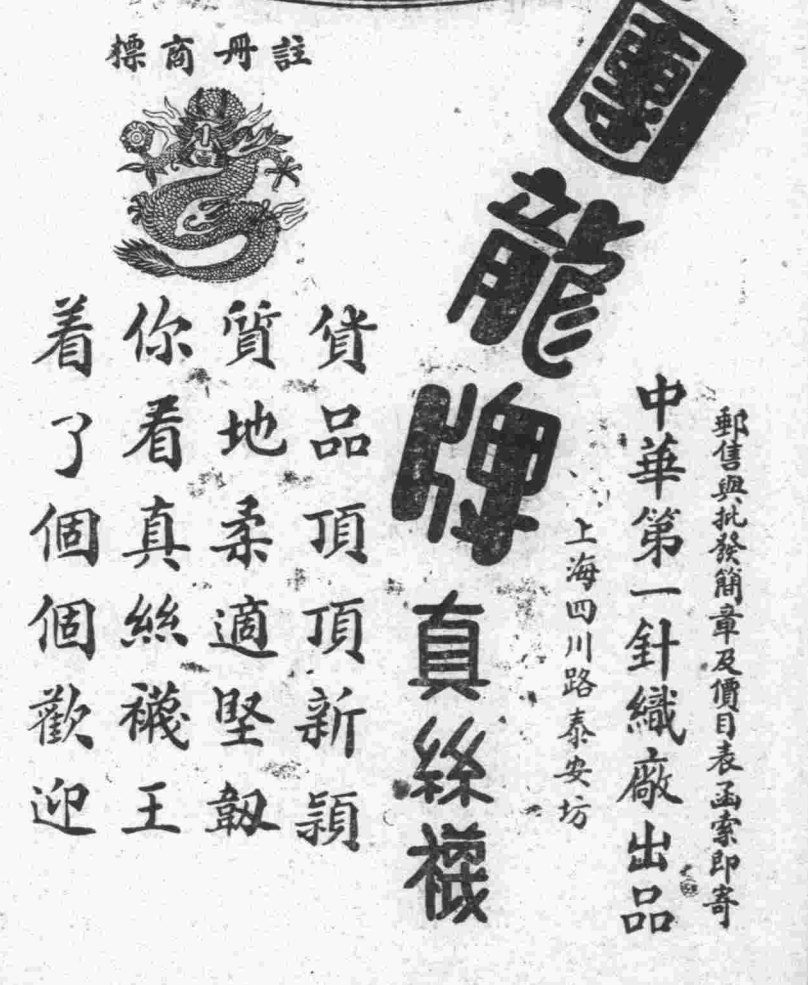 郵售與批發簡章及價目表函索即寄
中華第一針織廠出品
上海四川路泰安坊
團龍牌真絲襪
註冊商標
貨品頂頂新穎
質地柔適堅韌
你看真絲襪王
着了個個歡迎